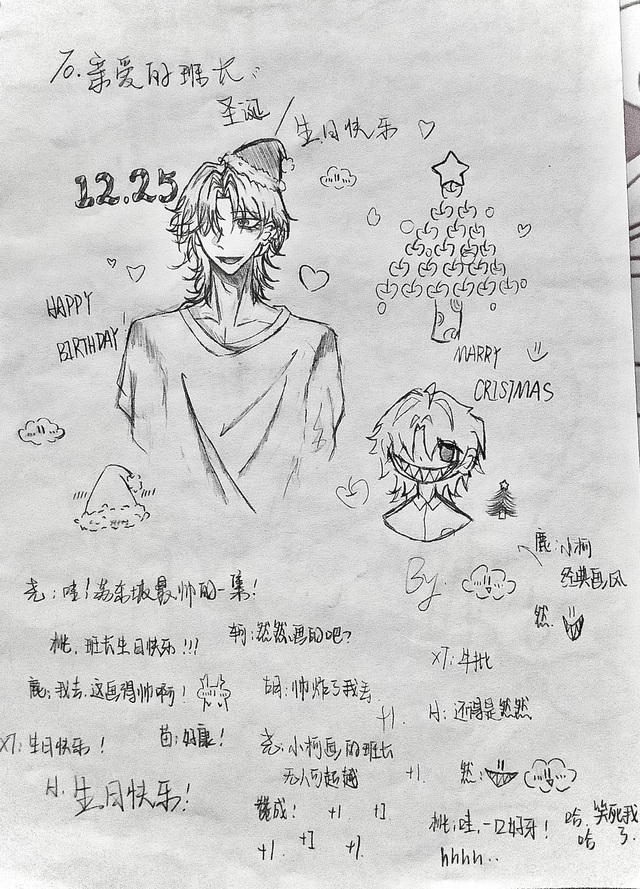 To. 亲爱的班长:
圣诞/生日快乐
12.25
HAPPY
BIRTHDAY!
MARRY
CRISTMAS
By.
鹿:小柯
经典画风
然:
尧:哇!苏东坡最帅的一集!
桃:班长生日快乐!!!
轲:然然画的吧?
鹿:我去,这画得帅啊!
胡:帅炸了我去
+1.
刘:牛批
月:还得是然然
刘:生日快乐!
苗:好康!
尧:小柯画的班长
无人可超越
+1.
然:
月:生日快乐!
赞成!
+1
+1
+1.
+1
+1.
桃:哇,一口好牙!
hhhh..
哈哈
笑死我了.